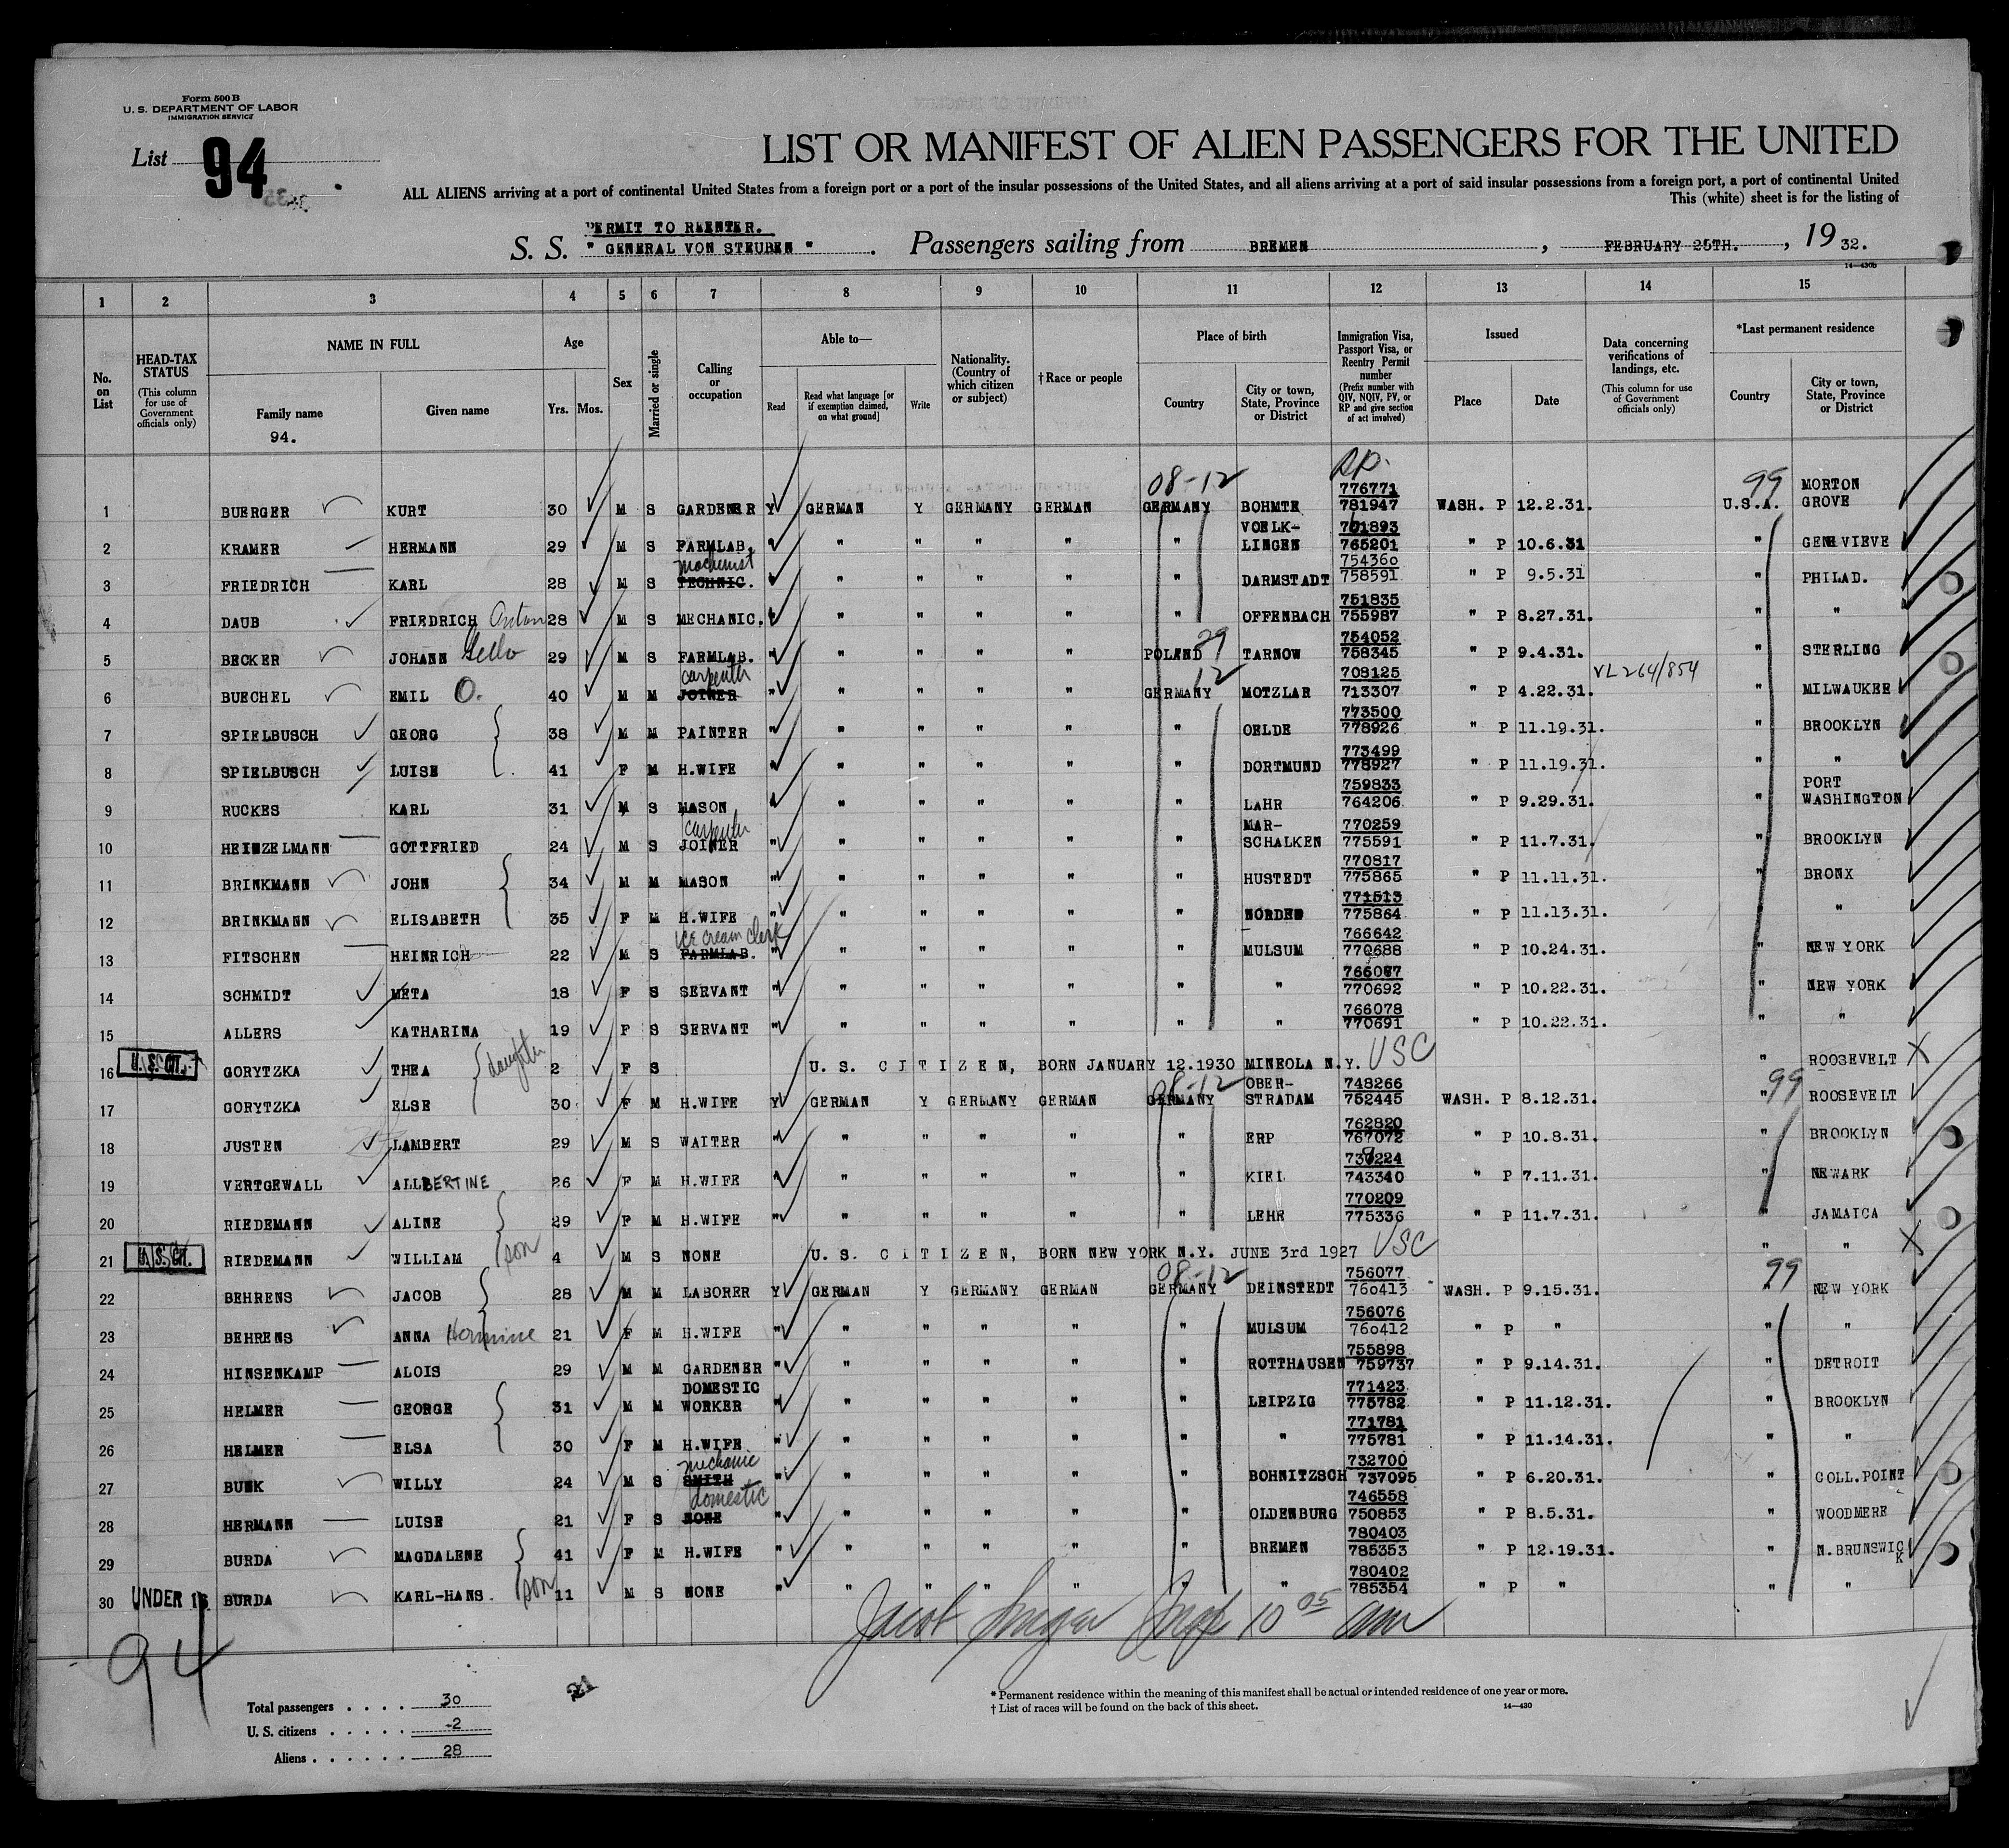 Form 500 B
U. S. DEPARTMENT OF LABOR
IMMIGRATION SERVICE
List 94
LIST OR MANIFEST OF ALIEN PASSENGERS FOR THE UNITED
ALL ALIENS arriving at a port of continental United States from a foreign port or a port of the insular possessions of the United States, and all aliens arriving at a port of said insular possessions from a foreign port, a port of continental United
This (white) sheet is for the listing of
PERMIT TO REENTER.
S. S. " GENERAL VON STEUBEN " . Passengers sailing from BREMEN , FEBRUARY 25TH. , 19 32.
14—430b
1 2 3 4 5 6 7 8 9 10 11 12 13 14 15
No. on List
HEAD-TAX STATUS (This column for use of Government officials only)
NAME IN FULL Family name Given name
94.
Age Yrs. Mos.
Sex
Married or single
Calling or occupation
Able to— Read Read what language [or if exemption claimed, on what ground] Write
Nationality. (Country of which citizen or subject)
† Race or people
Place of birth Country City or town, State, Province or District
Immigration Visa, Passport Visa, or Reentry Permit number (Prefix number with QIV, NQIV, PV, or RP and give section of act involved)
Issued Place Date
Data concerning verifications of landings, etc. (This column for use of Government officials only)
*Last permanent residence Country City or town, State, Province or District
08-12 RP. 776771 99 MORTON
1 BUERGER KURT 30 M S GARDENER Y GERMAN Y GERMANY GERMAN GERMANY BOHMTE 781947 WASH. P 12.2.31. U.S.A. GROVE
VOELK- 761893
2 KRAMER HERMANN 29 M S FARMLAB. " " " " " " LINGEN 765201 " P 10.6.31 " GENEVIEVE
machinist 754360
3 FRIEDRICH KARL 28 M S TECHNIC. " " " " " DARMSTADT 758591 " P 9.5.31 " PHILAD.
751835
4 DAUB FRIEDRICH Anton 28 M S MECHANIC. " " " " " OFFENBACH 755987 " P 8.27.31. " "
29 754052
5 BECKER JOHANN 29 M S FARMLAB. " " " " " POLAND TARNOW 758345 " P 9.4.31. " STERLING
carpenter 12 708125 VL 264/854
6 BUECHEL EMIL O. 40 M M JOINER " " " " " GERMANY MOTZLAR 713307 " P 4.22.31. " MILWAUKEE
773500
7 SPIELBUSCH GEORG 38 M M PAINTER " " " " " " OELDE 778926 " P 11.19.31. " BROOKLYN
773499
8 SPIELBUSCH LUISE 41 F M H.WIFE " " " " " " DORTMUND 778927 " P 11.19.31. " "
759833 PORT
9 RUCKES KARL 31 M S MASON " " " " " " LAHR 764206 " P 9.29.31. " WASHINGTON
carpenter MAR- 770259
10 HEINZELMANN GOTTFRIED 24 M S JOINER " " " " " " SCHALKEN 775591 " P 11.7.31. " BROOKLYN
770817
11 BRINKMANN JOHN 34 M M MASON " " " " " " HUSTEDT 775865 " P 11.11.31. " BRONX
771513
12 BRINKMANN ELISABETH 35 F M H.WIFE " " " " " " NORDEN 775864 " P 11.13.31. " "
ice cream clerk 766642
13 FITSCHEN HEINRICH 22 M S FARMLAB. " " " " " " MULSUM 770688 " P 10.24.31. " NEW YORK
766087
14 SCHMIDT META 18 F S SERVANT " " " " " " " 770692 " P 10.22.31. " NEW YORK
766078
15 ALLERS KATHARINA 19 F S SERVANT " " " " " " " 770691 " P 10.22.31. " "
16 U. S. CIT. GORYTZKA THEA daughter 2 F S U. S. CITIZEN, BORN JANUARY 12.1930 MINEOLA N.Y. USC " ROOSEVELT X
08-12 OBER- 748266 99
17 GORYTZKA ELSE 30 F M H.WIFE Y GERMAN Y GERMANY GERMAN GERMANY STRADAM 752445 WASH. P 8.12.31. " ROOSEVELT
762820
18 JUSTEN LAMBERT 29 M S WAITER " " " " " " ERP 767072 " P 10.8.31. " BROOKLYN
738224
19 VERTGEWALL ALLBERTINE 26 F M H.WIFE " " " " " " KIEL 743340 " P 7.11.31. " NEWARK
770209
20 RIEDEMANN ALINE 29 F M H.WIFE " " " " " " LEHR 775336 " P 11.7.31. " JAMAICA
21 U. S. CIT. RIEDEMANN WILLIAM son 4 M S NONE U. S. CITIZEN, BORN NEW YORK N.Y. JUNE 3rd 1927 USC " " X
08-12 756077 99
22 BEHRENS JACOB 28 M M LABORER Y GERMAN Y GERMANY GERMAN GERMANY DEINSTEDT 760413 WASH. P 9.15.31. " NEW YORK
756076
23 BEHRENS ANNA Hermine 21 F M H.WIFE " " " " " " MULSUM 760412 " P " " "
755898
24 HINSENKAMP ALOIS 29 M M GARDENER " " " " " " ROTTHAUSEN 759737 " P 9.14.31. " DETROIT
DOMESTIC 771423
25 HELMER GEORGE 31 M M WORKER " " " " " " LEIPZIG 775782 " P 11.12.31. " BROOKLYN
771781
26 HELMER ELSA 30 F M H.WIFE " " " " " " " 775781 " P 11.14.31. " "
mechanic 732700
27 BUNK WILLY 24 M S SMITH " " " " " " BOHNITZSCH 737095 " P 6.20.31. " COLL.POINT
domestic 746558
28 HERMANN LUISE 21 F S NONE " " " " " " OLDENBURG 750853 " P 8.5.31. " WOODMERE
780403
29 BURDA MAGDALENE 41 F M H.WIFE " " " " " " BREMEN 785353 " P 12.19.31. " N.BRUNSWICK
780402
30 UNDER 16 BURDA KARL-HANS. son 11 M S NONE " " " " " " " 785354 " P " " "
Jacob Insp 10 05 am
94
Total passengers . . . . 30
U. S. citizens . . . . . -2
Aliens . . . . . . 28
21
* Permanent residence within the meaning of this manifest shall be actual or intended residence of one year or more.
† List of races will be found on the back of this sheet. 14—430